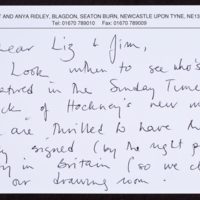 T AND ANYA RIDLEY, BLAGDON, SEATON BURN, NEWCASTLE UPON TYNE, NE13
Tel: 01670 789010 Fax: 01670 789009
ear Liz & Jim,
Look when to see who's
atured in the Sunday Time
ck of Hockney's new
are thrilled to have th
y signed (by the right p
y in Britain (so we c
our drawing room.